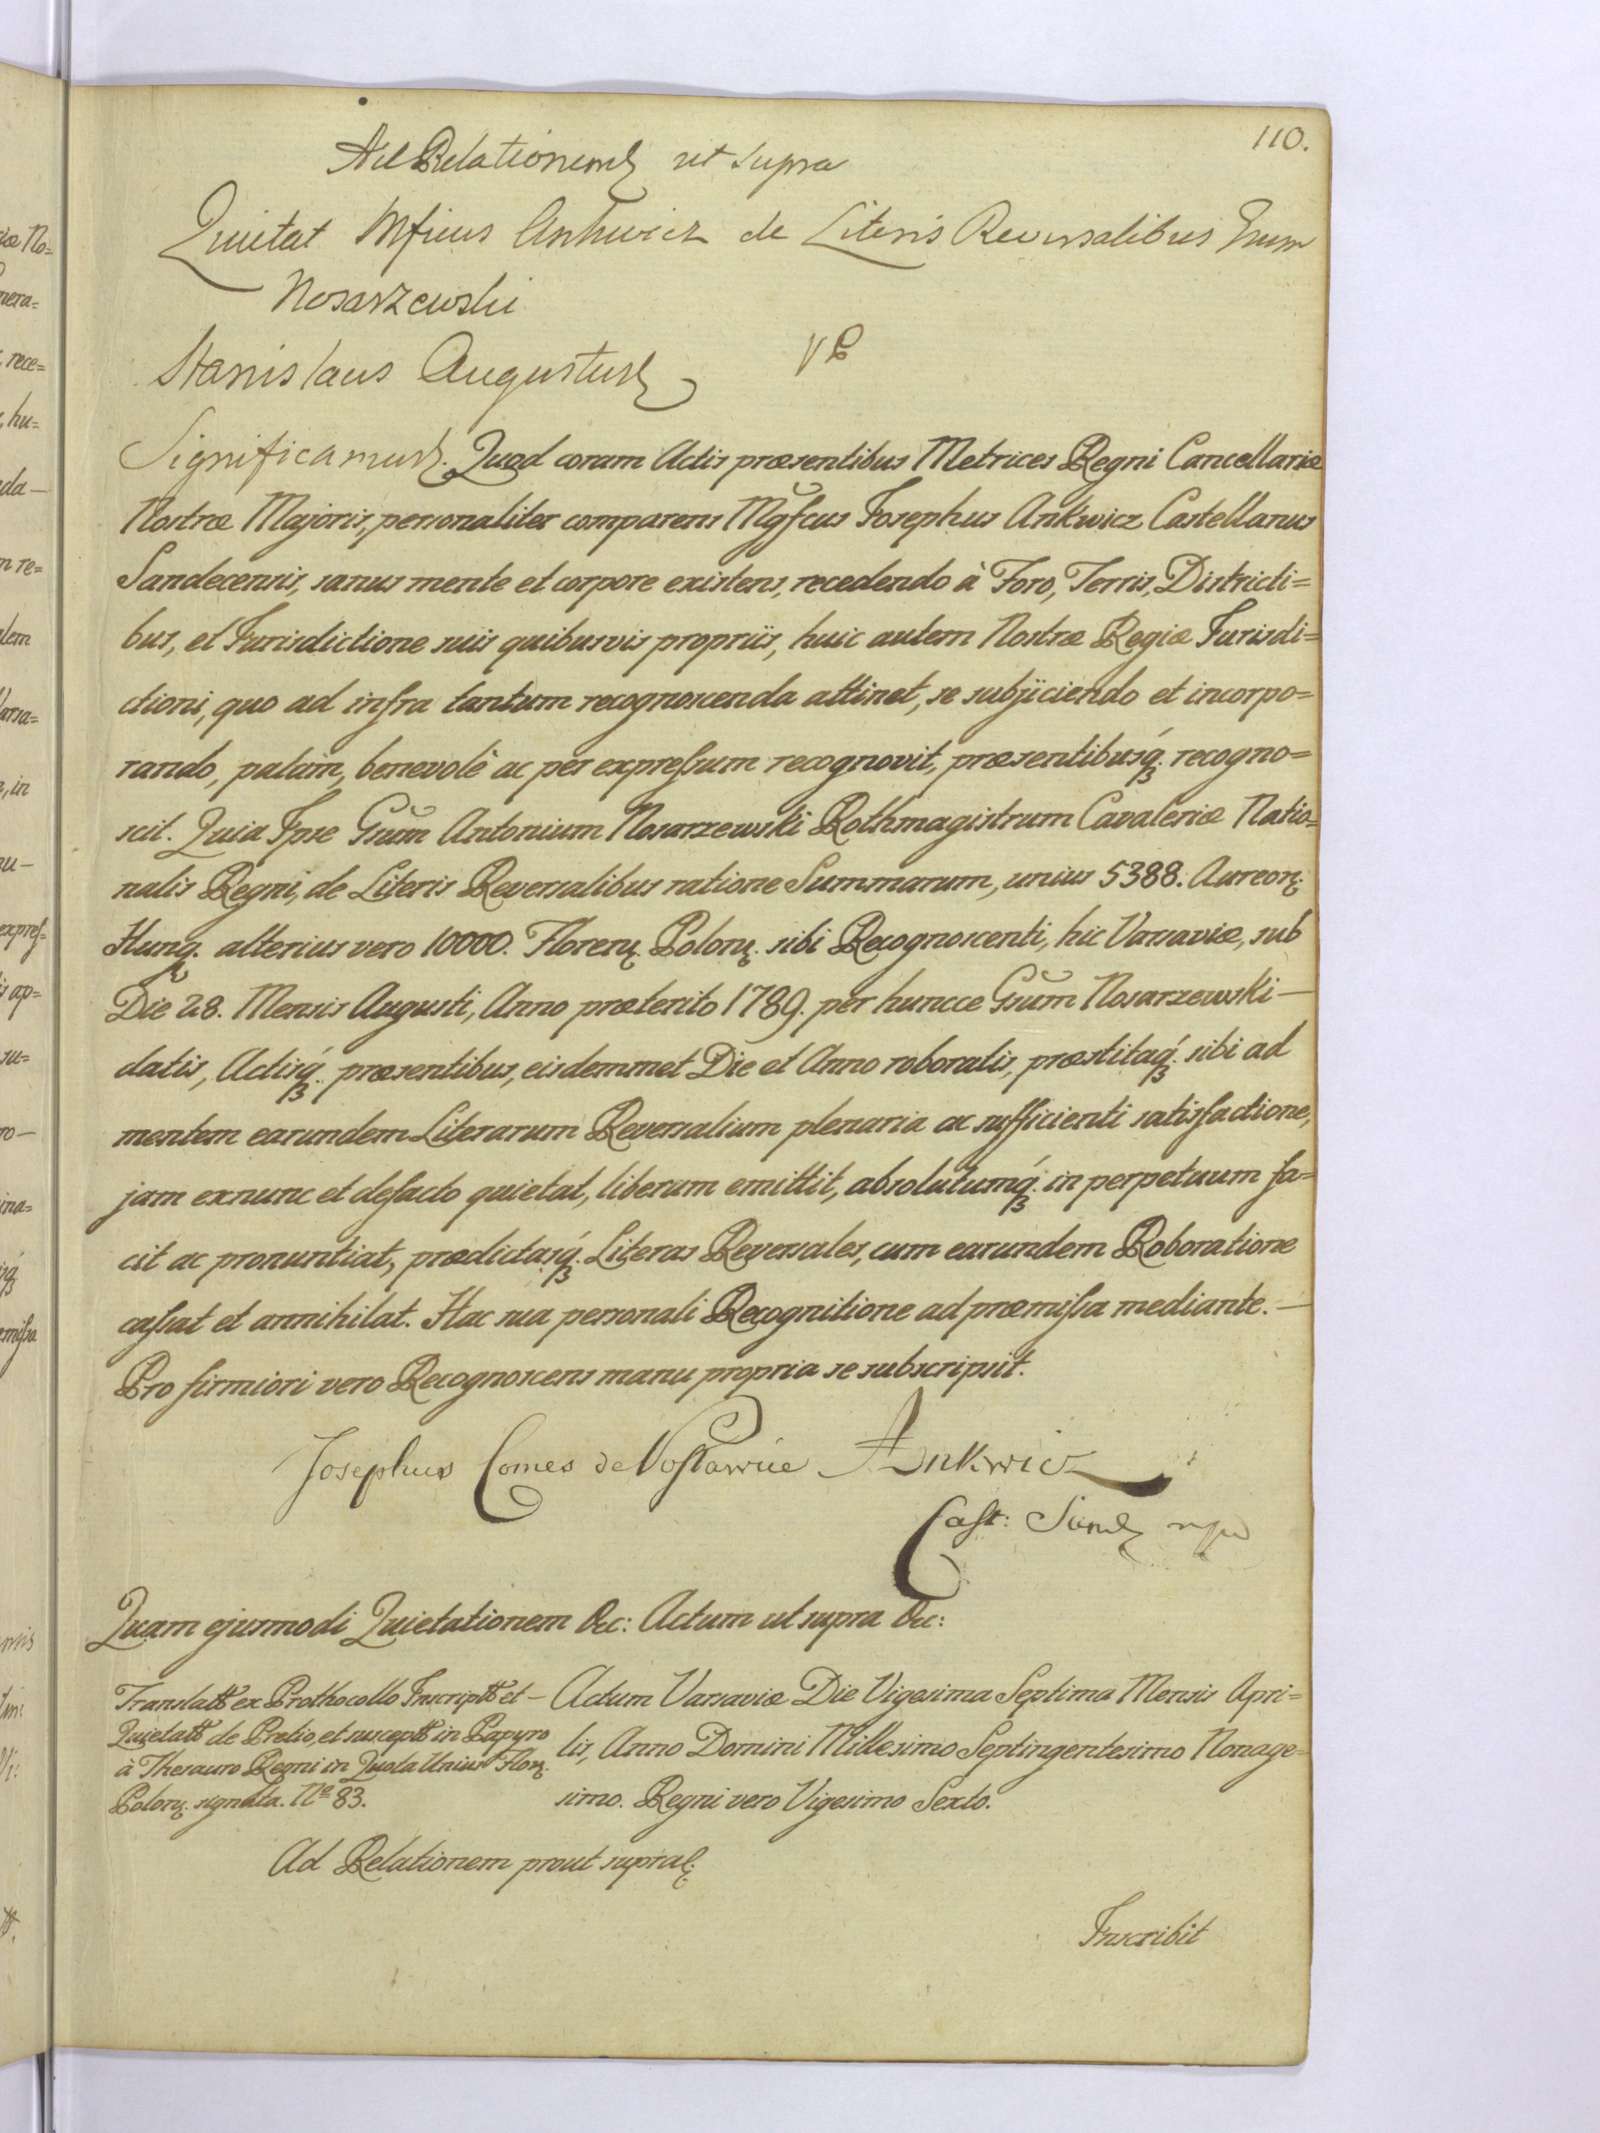 110.
Ad Relationem ut supra
Quietat Mficus Ankwicz de Literis Reversalibus Grum
Nosarzewski
Stanislaus Augustus
Significamus. Quod coram Actis præsentibus Metrices Regni Cancellariæ
Nostræ Majoris, personaliter comparens Mgfcus Josephus Ankwicz Castellanus
Sandecensis, sanus mente et corpore existens, recedendo à Foro, Terris, Districti=
bus, et Jurisdictione suis quibusvis propriis, huic autem Nostræ Regiæ Jurisdi=
ctioni, quo ad infra tantum recognoscenda attinet, se subjiciendo et incorpo=
rando, palam, benevolè ac per expressum recognovit, præsentibusq́. recogno=
scit. Quia Ipse Grum Antonium Nosarzewski Rothmagistrum Cavaleriæ Natio=
nalis Regni, de Literis Reversalibus ratione Summarum, unius 5388. Aureor.
Hung. alterius vero 10000. Floren. Polon. sibi Recognoscenti, hic Varsaviæ, sub
Die 28. Mensis Augusti, Anno præterito 1789. per huncce Grum Nosarzewski —
datis, Actisq́. præsentibus, eisdemmet Die et Anno roboratis, præstitaq́. sibi ad
mentem earundem Literarum Reversalium plenaria ac sufficienti satisfactione,
jam exnunc et defacto quietat, liberum emittit, absolutumq́. in perpetuum fa=
cit ac pronuntiat, prædictasq́. Literas Reversales, cum earundem Roboratione
cassat et annihilat. Hac sua personali Recognitione ad præmissa mediante. —
Pro firmiori vero Recognoscens manu propria se subscripsit.
Josephus Comes de Posławice Ankwicz
Cast: Sand mpp
Quam ejusmodi Quietationem &c: Actum ut supra &c:
Translatt ex Prothocollo Inscriptt et —
Quietatt de Pretio, et susceptt in Papyro
à Thesauro Regni in Quota Unius Flon.
Polon. signata. No 83.
Actum Varsaviæ Die Vigesima Septima Mensis Apri=
lis, Anno Domini Millesimo Septingentesimo Nonage=
simo. Regni vero Vigesimo Sexto.
Ad Relationem prout supra.
Inscribit